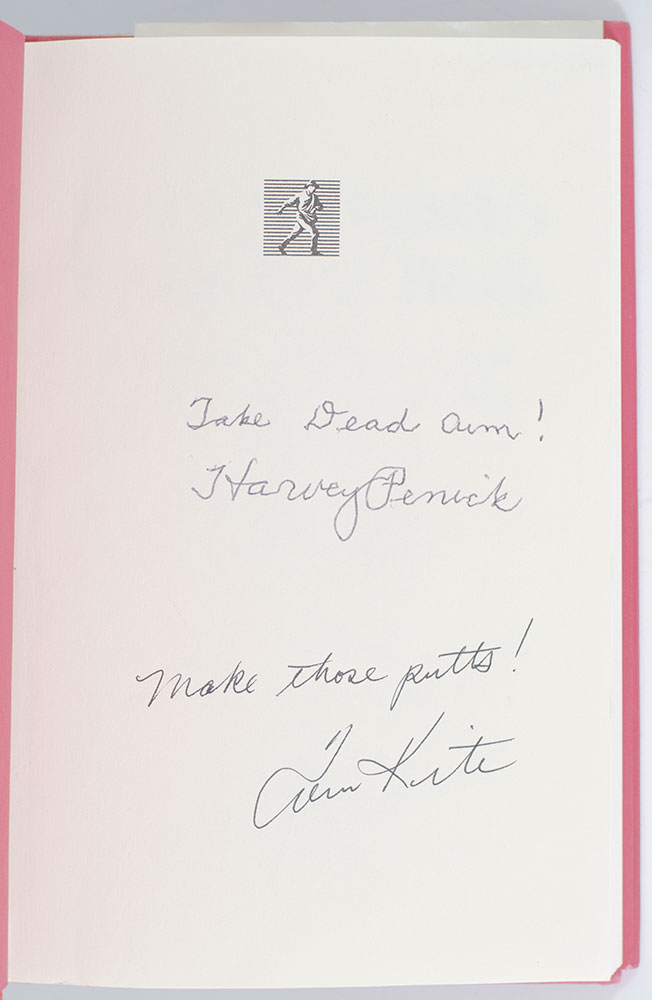 Take Dead Aim!
Harvey Penick
Make those putts!
Tom Kite